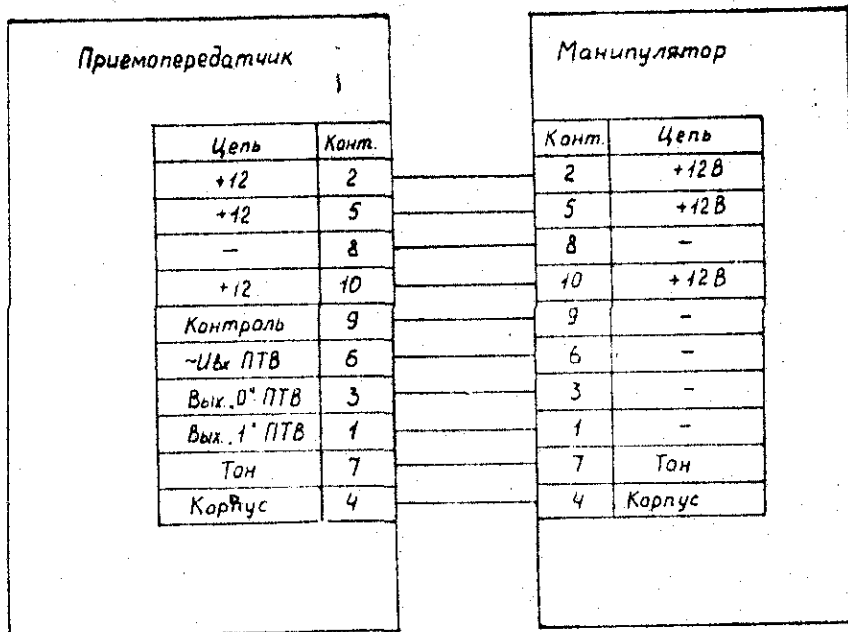 Приемопередатчик
Цепь Конт.
+12 2
+12 5
— 8
+12 10
Контроль 9
~Uвх ПТВ 6
Вых. „0" ПТВ 3
Вых. „1" ПТВ 1
Тон 7
Корпус 4
Манипулятор
Конт. Цепь
2 +12В
5 +12В
8 –
10 +12В
9 –
6 –
3 –
1 –
7 Тон
4 Корпус